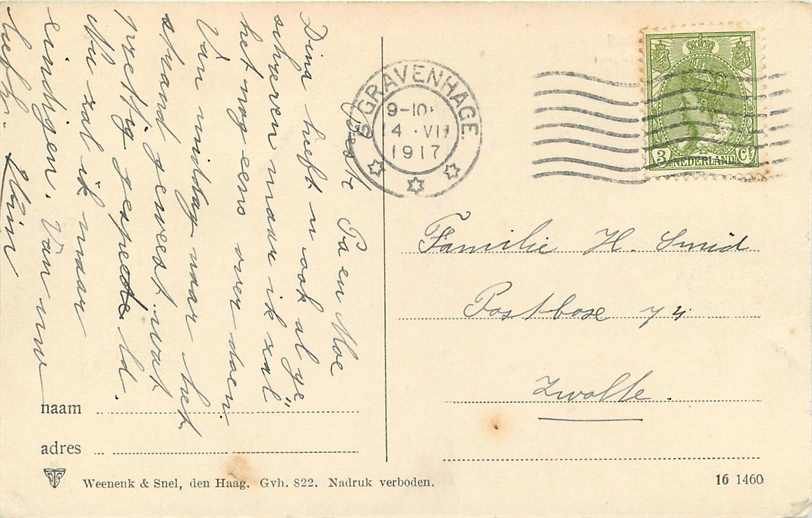 Beste Pa en Moe
Dina heeft u ook al ge
schreven maar ik zal
het nog eens over doen.
Van middag naar het
strand geweest wat
prettig gespeeld.
Nu zal ik maar
eindigen. Van uw
liefh.
'S GRAVENHAGE
9-10
4 VII
1917
3 Ct
NEDERLAND
Familie H. Smid
Postboxe 74
Zwolle.
naam
adres
Weenenk & Snel, den Haag. Gvh. 822. Nadruk verboden.
16 1460